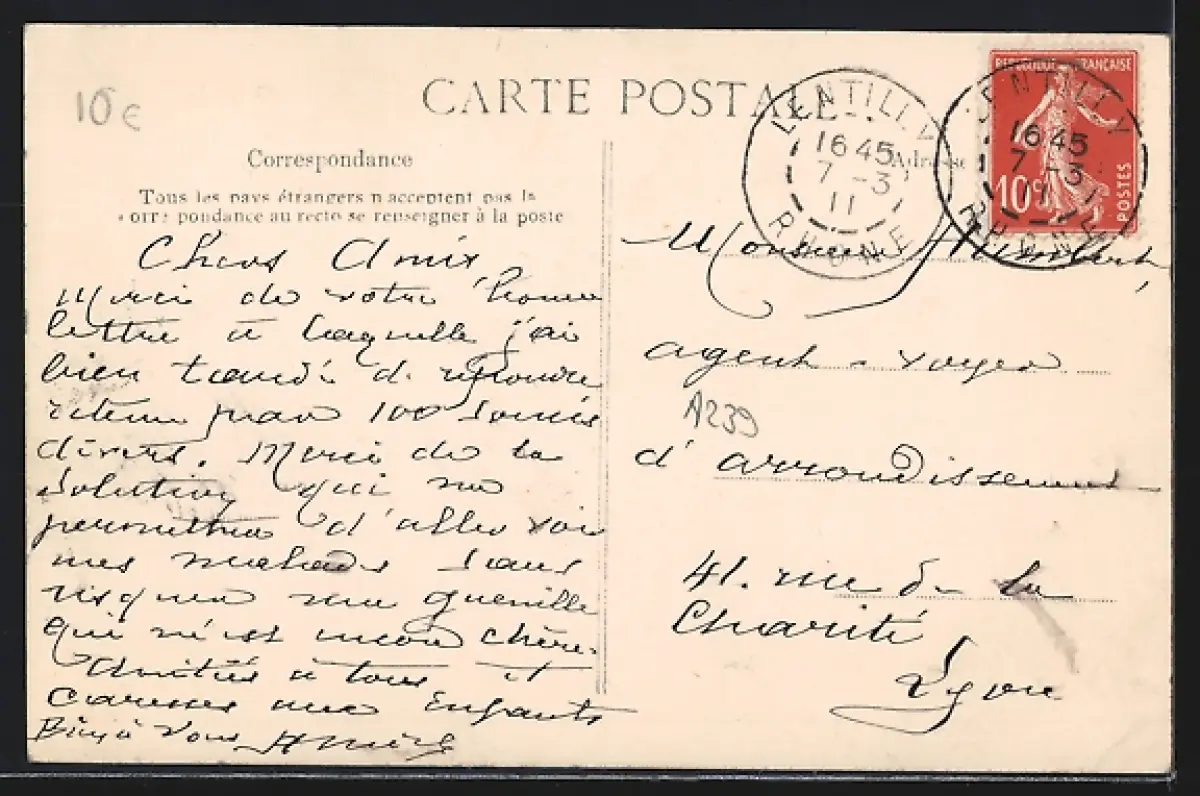 10€
CARTE POSTALE
Correspondance
Tous les pays étrangers n'acceptent pas la
correspondance au recto se renseigner à la poste
Chers Amis,
Merci de votre bonne
lettre à laquelle j'ai
bien tardé de répondre
retenu par 100 soucis
divers. Merci de la
solution qui me
permettra d'aller voir
mes malades sans
risquer ma guenille
qui m'est encore chère.
Amitiés à tous et
caresses aux Enfants
Bien à vous
LENTILLY
16 45
7 -3
11
RHONE
LENTILLY
16 45
7 -3
11
RHONE
REPUBLIQUE FRANÇAISE
10c
POSTES
Adresse
Monsieur Humbert,
agent-voyer
A239
d'arrondissement
41. rue de la
Charité
Lyon